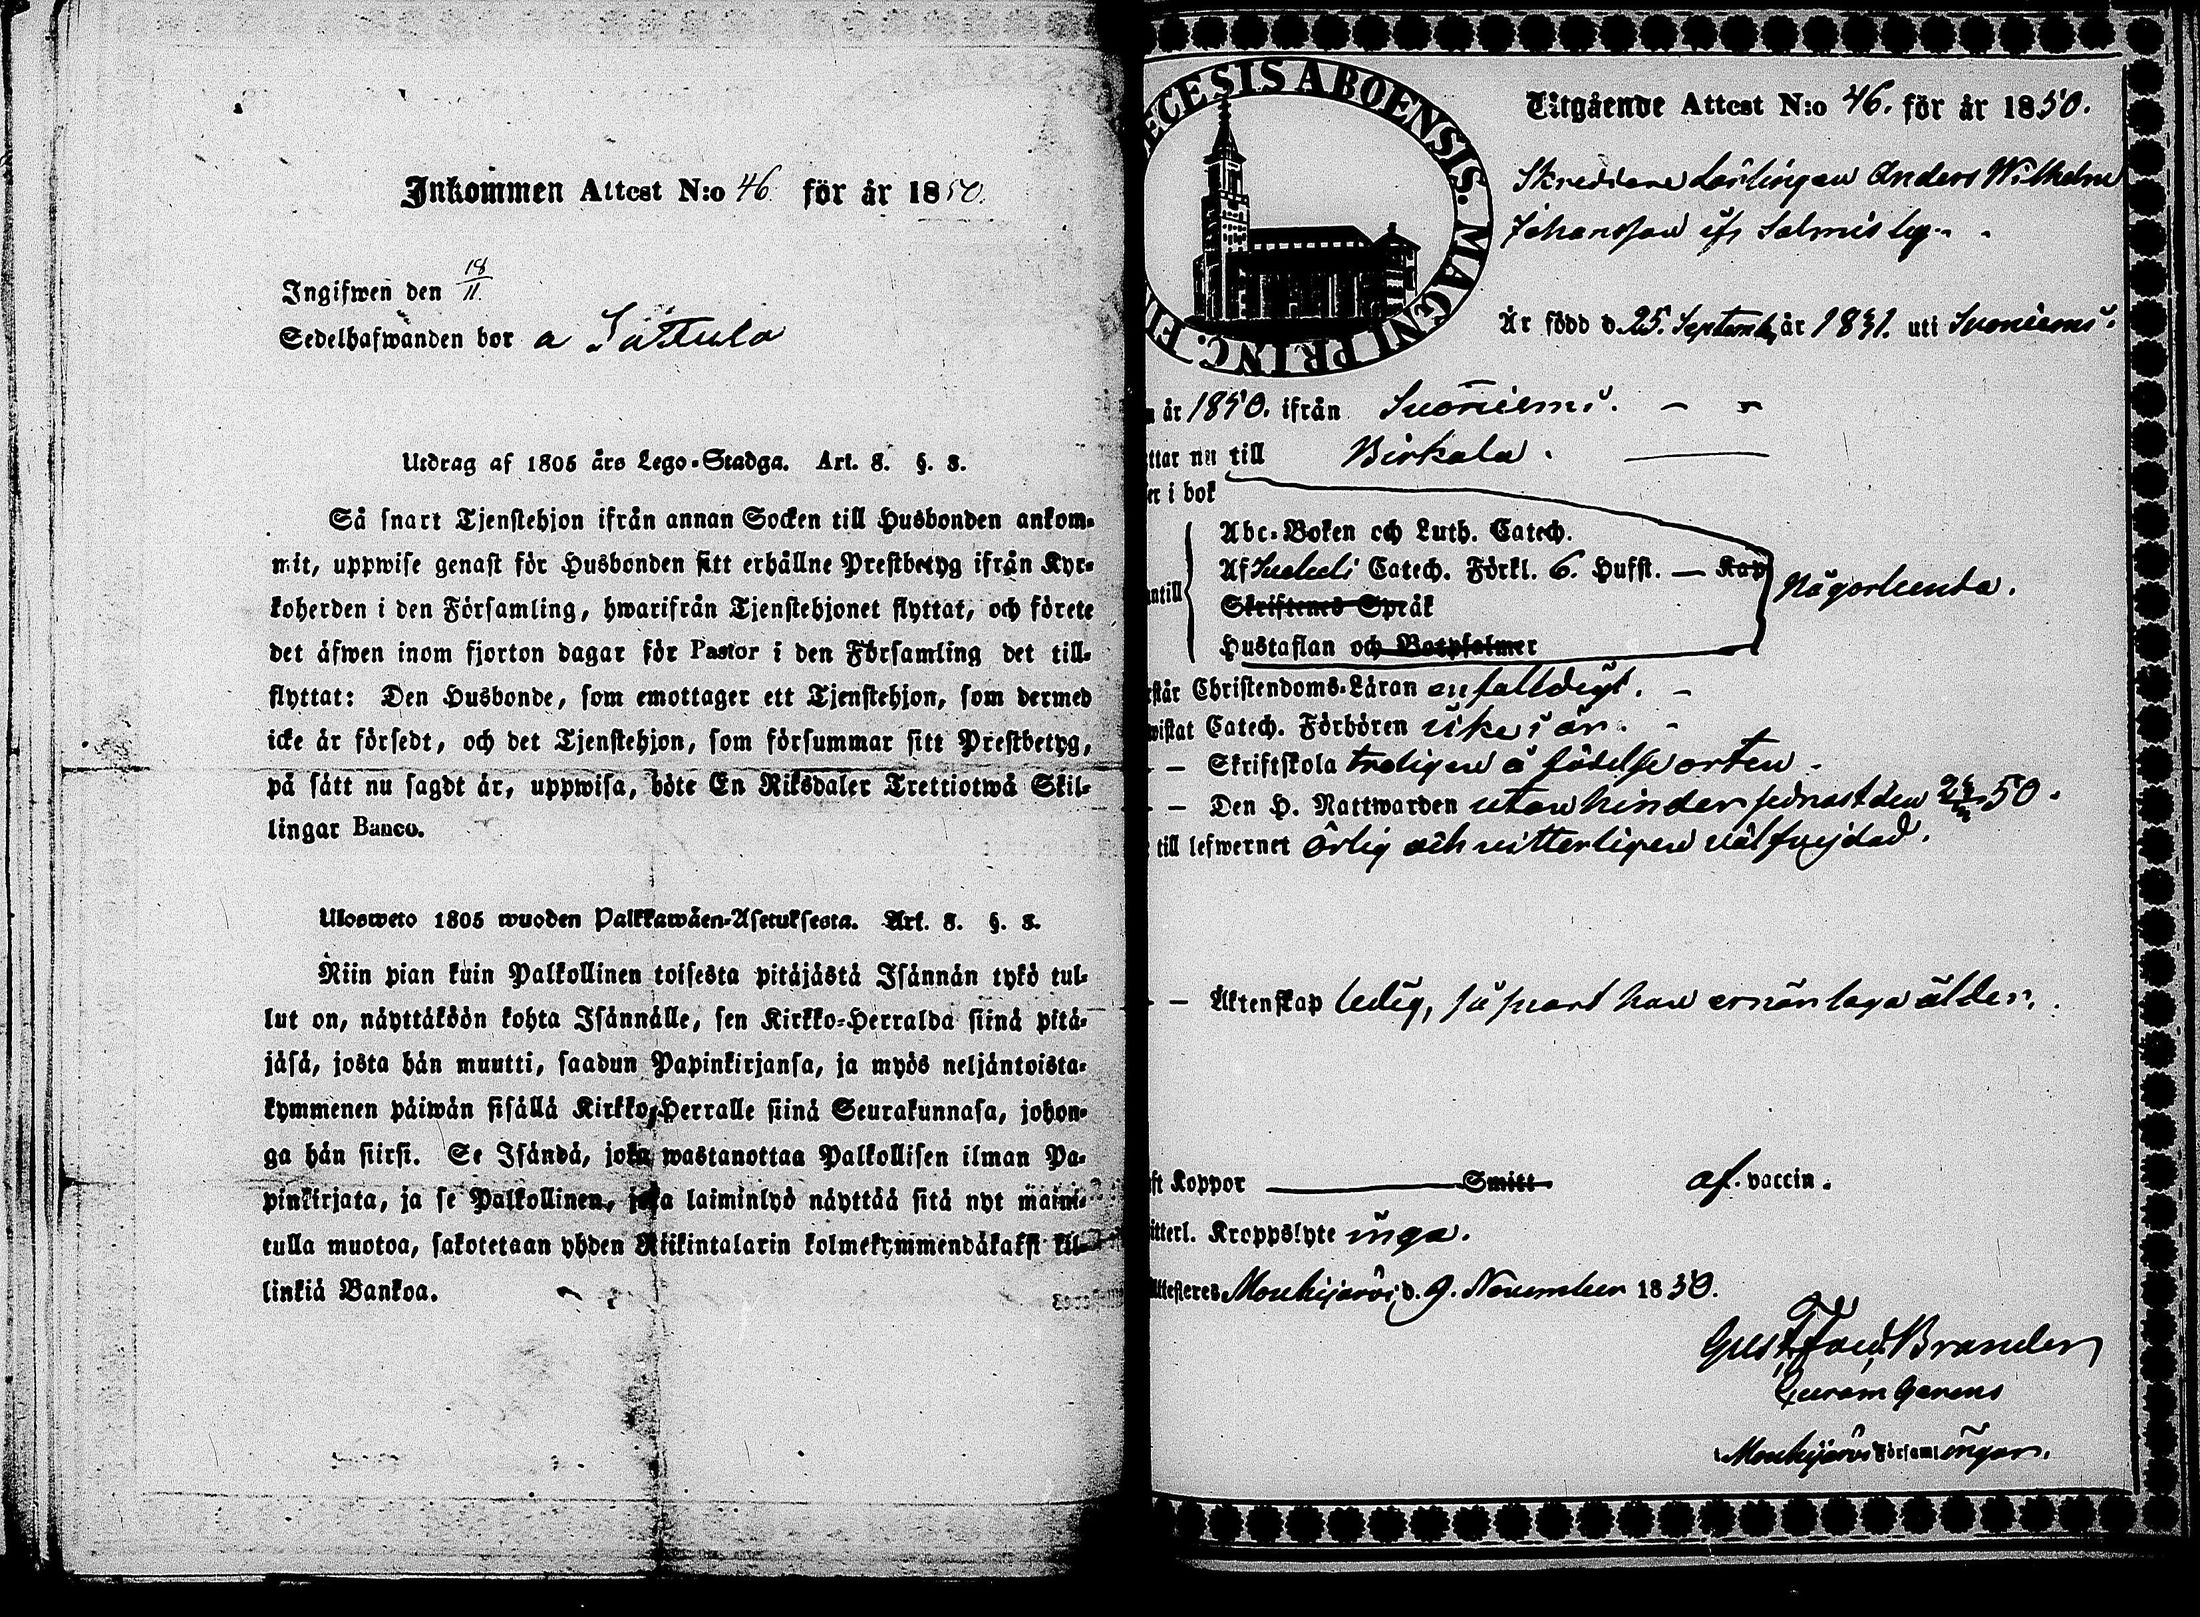 Inkommen Attest N:o 46. för år 1850.
Ingifwen den 18/11.
Sedelhafwanden bor a Sättula
Utdrag af 1805 års Lego-Stadga. Art. 8. §. 3.
Så snart Tjenstehjon ifrån annan Socken till Husbonden ankom-
mit, uppwise genast för Husbonden sitt erhållne Prestbetyg ifrån Kyr-
koherden i den Församling, hwarifrån Tjenstehjonet flyttat, och förete
det äfwen inom fjorton dagar för Pastor i den Församling det till-
flyttat: Den Husbonde, som emottager ett Tjenstehjon, som dermed
icke är försedt, och det Tjenstehjon, som försummar sitt Prestbetyg,
på sätt nu sagdt är, uppwisa, böte En Riksdaler Trettiotwå Skil-
lingar Banco.
Ulosweto 1805 wuoden Palkkawäen-Asetuksesta. Art. 8. §. 3.
Niin pian kuin Palkollinen toisesta pitäjästä Isännän tykö tul-
lut on, näyttäköön kohta Isännälle, sen Kirkko-Herralda siinä pitä-
jäsä, josta hän muutti, saadun Papinkirjansa, ja myös neljäntoista-
kymmenen päiwän sisällä Kirkko-Herralle siinä Seurakunnasa, johon-
ga hän siirsi. Se Isändä, joka wastanottaa Palkollisen ilman Pa-
pinkirjata, ja se Palkollinen, joka laiminlyö näyttää sitä nyt maini-
tulla muotoa, sakotetaan yhden Riikintalarin kolmekymmendäkaksi kil-
linkiä Bankoa.
ECESIS ABOENSIS. MAGNI PRINC. FIN
Utgående Attest N:o 46. för år 1850.
Skreddare Lärlingen Anders Wilhelm
Johansson ifr Salmis by
Är född d. 25. Septemb. år 1831. uti Suoniemi.
år 1850. ifrån Suoniemi.
ttar nu till Birkala.
er i bok
Abc-Boken och Luth. Catech.
Af Svebeli Catech. Förkl. 6. Hufst. — Kap
antill Skriftenes Språk Någorlunda.
Hustaflan och Botpsalmer
står Christendoms-Läran enfaldigt.
wistat Catech. Förhören icke i år.
— Skriftskola troligen å födelse orten.
— Den H. Nattwarden utan hinder senast den 50.
till lefwernet Ärlig och vitterligen välfrejdad.
— Äktenskap ledig, så snart han ernår laga ålder.
ft Koppor Smitt af. vaccin.
itterl. Kroppslyte inga.
Attesteres Mouhijärvi d. 9. November 1850.
Gust. Brander
Curam Gerens
i Mouhijärvi Församlingar.